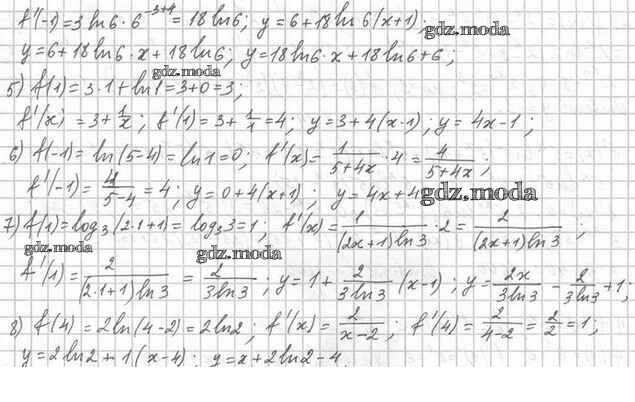 f'(-1)=3 ln6·6^(-3+4)=18 ln6; y=6+18 ln6(x+1);
gdz.moda
y=6+18 ln6·x+18 ln6; y=18 ln6·x+18 ln6+6;
gdz.moda
5) f(1)=3·1+ln1=3+0=3;
f'(x)=3+1/x; f'(1)=3+1/1=4; y=3+4(x-1); y=4x-1;
6) f(-1)=ln(5-4)=ln1=0; f'(x)=1/(5+4x)·4=4/(5+4x);
f'(-1)=4/(5-4)=4; y=0+4(x+1); y=4x+4
gdz.moda
7) f(1)=log₃(2·1+1)=log₃3=1; f'(x)=1/((2x+1)ln3)·2=2/((2x+1)ln3);
gdz.moda
gdz.moda
f'(1)=2/((2·1+1)ln3)=2/(3ln3); y=1+2/(3ln3)(x-1); y=2x/(3ln3)-2/(3ln3)+1;
8) f(4)=2ln(4-2)=2ln2; f'(x)=2/(x-2); f'(4)=2/(4-2)=2/2=1;
y=2ln2+1(x-4); y=x+2ln2-4
gdz.moda